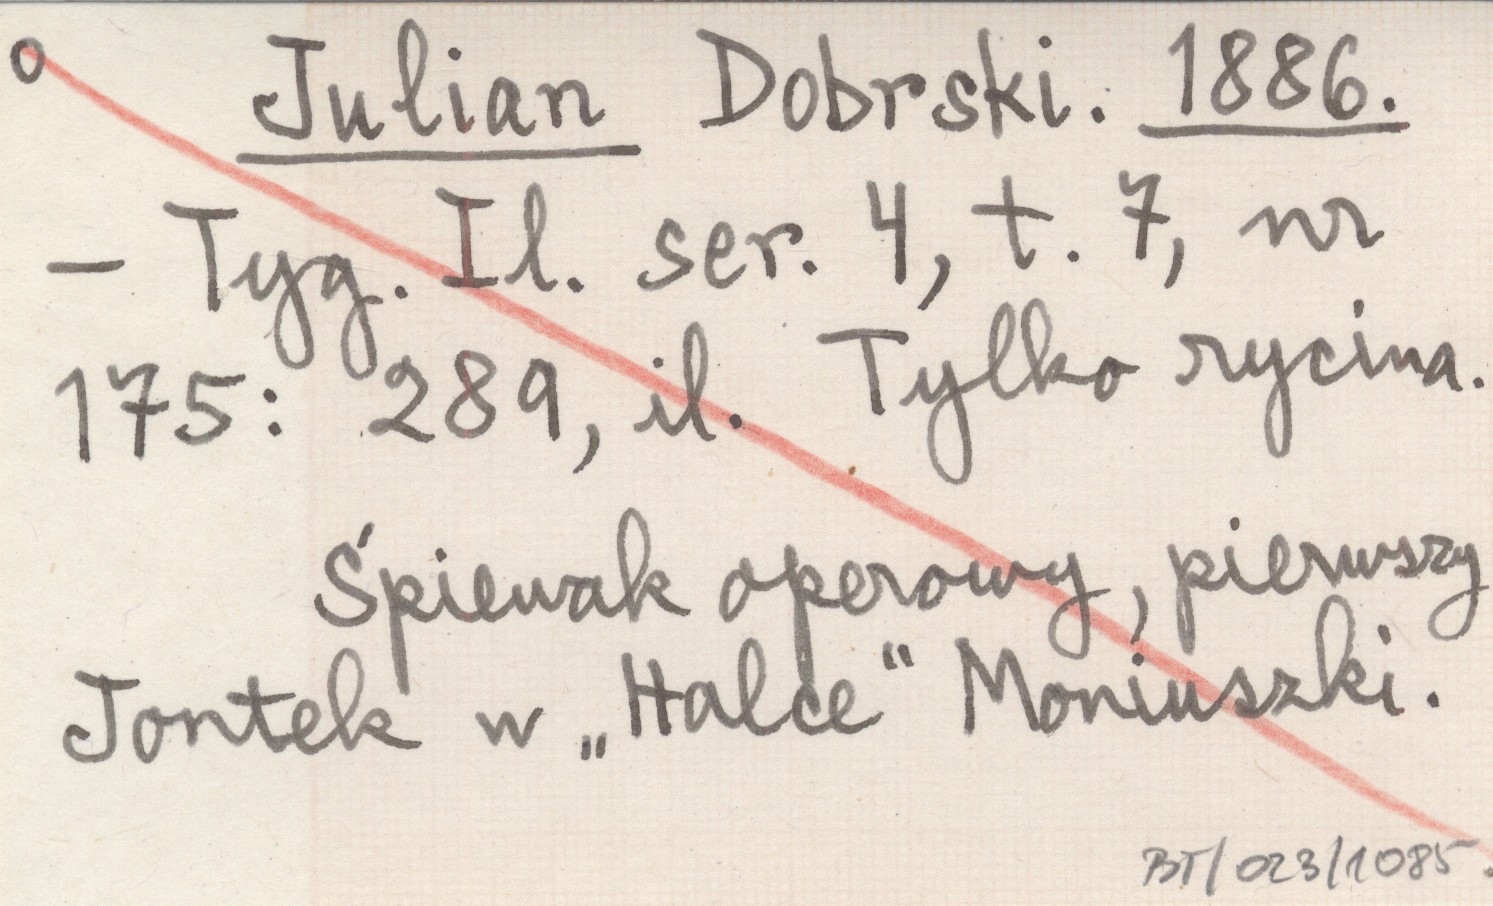 o Julian Dobrski. 1886.
– Tyg. Il. ser. 4, t. 7, nr
175: 289, il. Tylko rycina.
Śpiewak operowy, pierwszy
Jontek w „Halce“ Moniuszki.
BT/023/1085